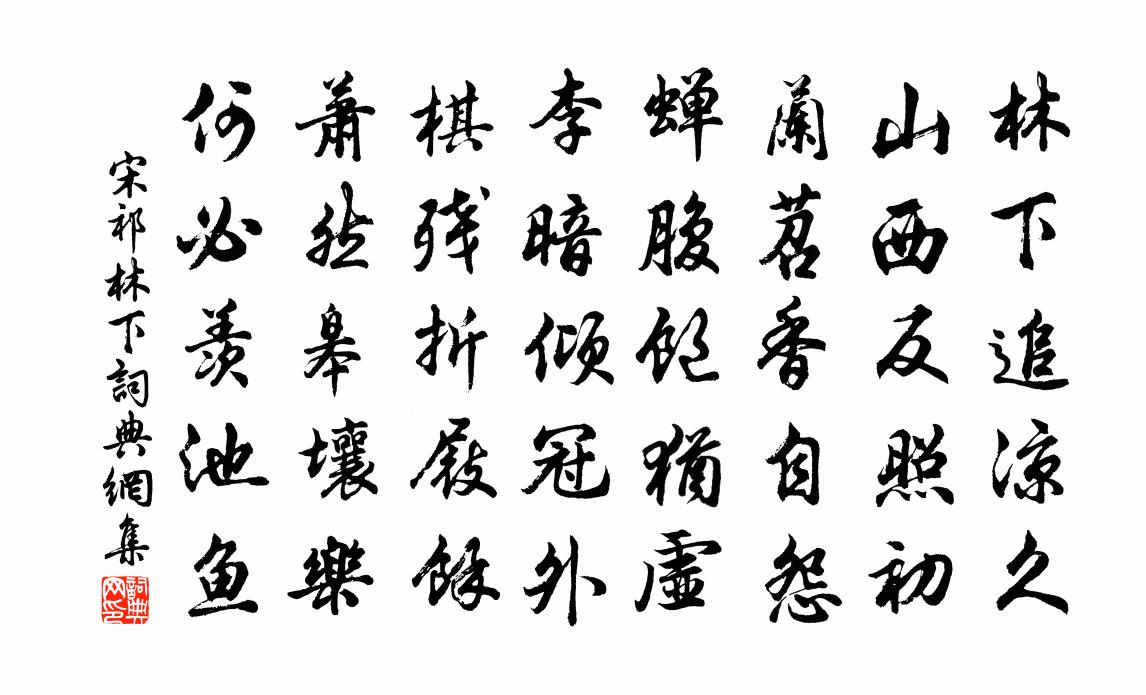 林下追凉久
山西反照初
蘭苕香自怨
蝉腹飽猶虛
李暗傾冠外
棋殘折屐餘
蕭然皋壤樂
何必羨池魚
宋祁林下詞典網集
詞典网印